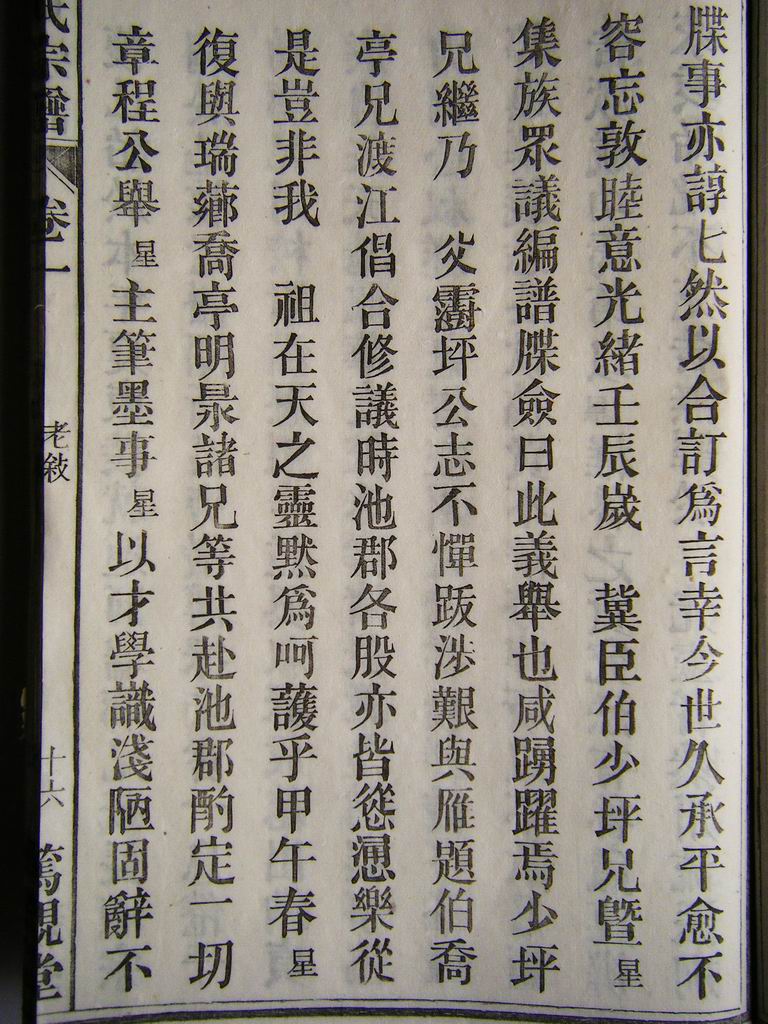 牒事亦諄七然以合訂爲言幸今世久承平愈不
容忘敦睦意光緒壬辰嵗　冀臣伯少坪兄曁星
集族眾議編譜牒僉曰此義舉也咸踴躍焉少坪
兄繼乃　父霱坪公志不憚跋涉艱與雁題伯喬
亭兄渡江倡合修議時池郡各股亦皆慫慂樂從
是豈非我　祖在天之靈默爲呵護乎甲午春星
復與瑞薌喬亭明泉諸兄等共赴池郡酌定一切
章程公舉星主筆墨事星以才學識淺陋固辭不
氏宗譜　卷一　老敘　十六　篤親堂